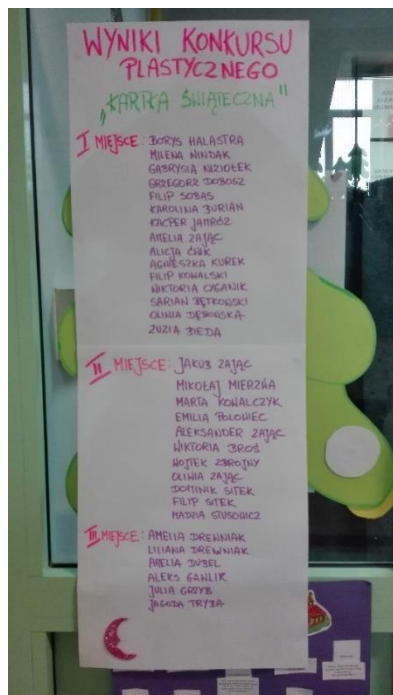 WYNIKI KONKURSU
PLASTYCZNEGO
„KARTKA ŚWIĄTECZNA"
I MIEJSCE: BORYS HALASTRA
MILENA WINDAK
GABRYSIA NIZIOŁEK
GRZEGORZ DOBOSZ
FILIP SOBAS
KAROLINA BURIAN
KACPER JAMRÓZ
AMELIA ZAJĄC
ALICJA ĆWIK
AGNIESZKA KUREK
FILIP KOWALSKI
WIKTORIA CYGANIK
SARIAN BĘTKOWSKI
OLIWIA DĘBOWSKA
ZUZIA BIEDA
II MIEJSCE: JAKUB ZAJĄC
MIKOŁAJ MIERZWA
MARTA KOWALCZYK
EMILIA POLOWIEC
ALEKSANDER ZAJĄC
WIKTORIA BROŚ
WOJTEK ZBROJNY
OLIWIA ZAJĄC
DOMINIK SITEK
FILIP SITEK
MADZIA
III MIEJSCE: AMELIA DREWNIAK
LILIANA DREWNIAK
AMELIA DUBEL
ALEKS GAWLIK
JULIA GRZYB
JAGODA TRYBA